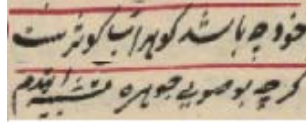 خود چه باشد گوهر آب کوثرست
گرچه بو صوبی جوهره تشبیه ایتدم